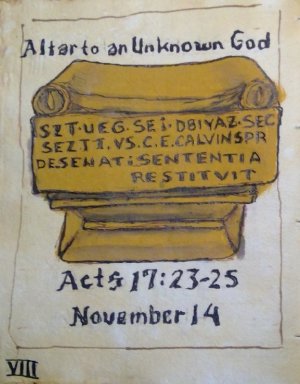 Altar to an Unknown God
SZT·UEG·SEI·DBIYAZ·SEC
SEZTI.VS.C.E.CALVINSPR
DESENAT:SENTENTIA
RESTITVIT
Acts 17:23-25
November 14
VIII